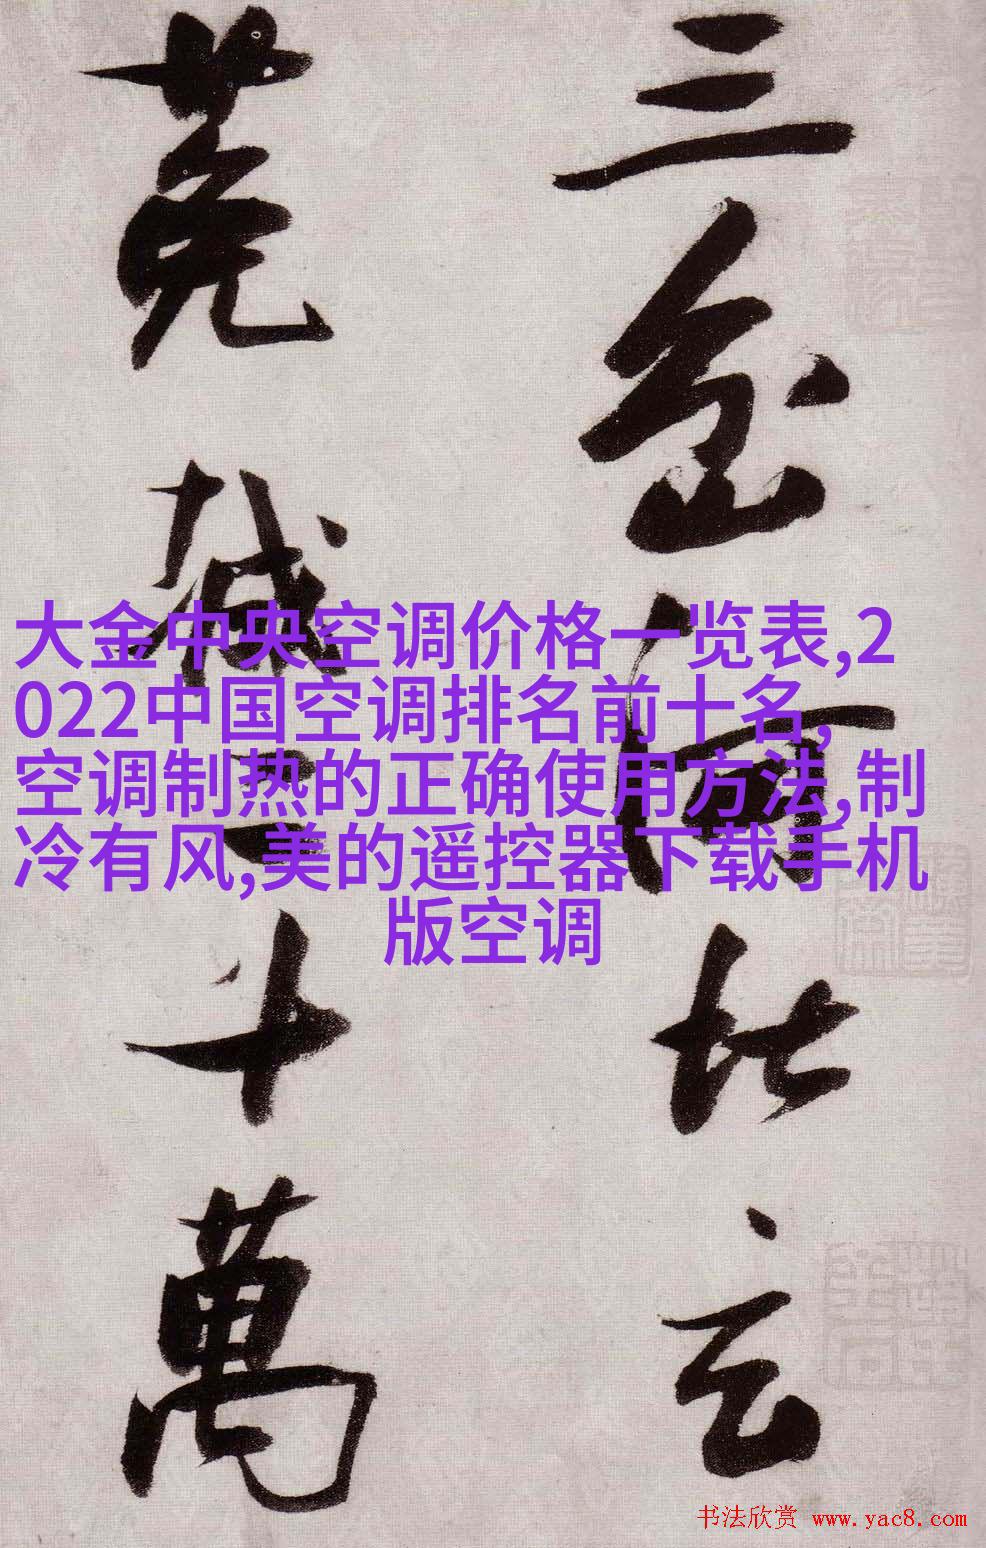 大金中央空调价格一览表,2
022中国空调排名前十名,
空调制热的正确使用方法,制
冷有风,美的遥控器下载手机
版空调
三河比云
二十萬
书法欣赏 www.yac8.com